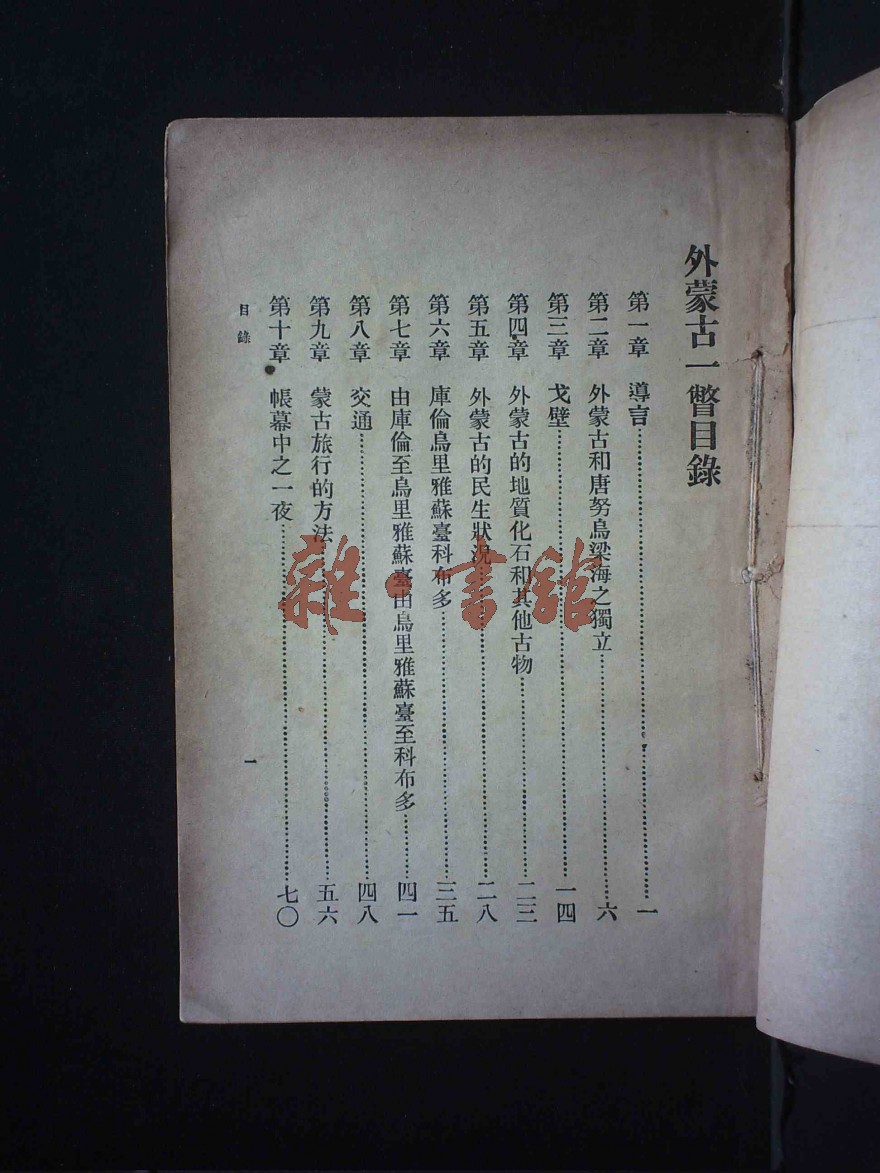 外蒙古一瞥目錄
第一章 導言 一
第二章 外蒙古和唐努烏梁海之獨立 六
第三章 戈壁 一四
第四章 外蒙古的地質化石和其他古物 二三
第五章 外蒙古的民生狀況 二八
第六章 庫倫烏里雅蘇臺科布多 三五
第七章 由庫倫至烏里雅蘇臺由烏里雅蘇臺至科布多 四一
第八章 交通 四八
第九章 蒙古旅行的方法 五六
第十章 帳幕中之一夜 七〇
目錄 一
雜·書館